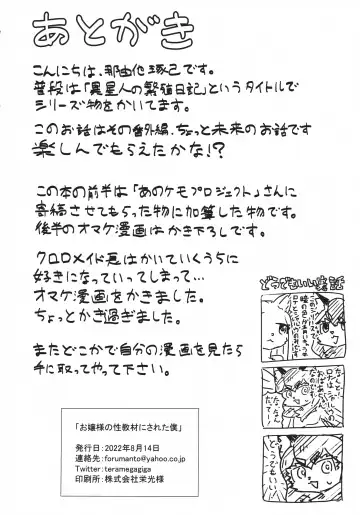 あとがき
こんにちは、那由他琢己です。
普段は「異星人の繁殖日記」というタイトルで
シリーズ物をかいてます。
このお話はその番外編、ちょっと未来のお話です
楽しんでもらえたかな!?
この本の前半は「あのケモプロジェクト」さんに
寄稿させてもらった物に加筆した物です。
後半のオマケ漫画はかき下ろしです。
クロロメイド長はかいていくうちに
好きになっていってしまって…
オマケ漫画をかきました。
ちょっとかき過ぎました。
またどこかで自分の漫画を見たら
手に取ってやって下さい。
どうでもいい裏話
このシリーズって
どうでもいい
「お嬢様の性教材にされた僕」
発行日:2022年8月14日
連絡先:forumanto@yahoo.co.jp
Twitter:teramegagiga
印刷所:株式会社栄光様